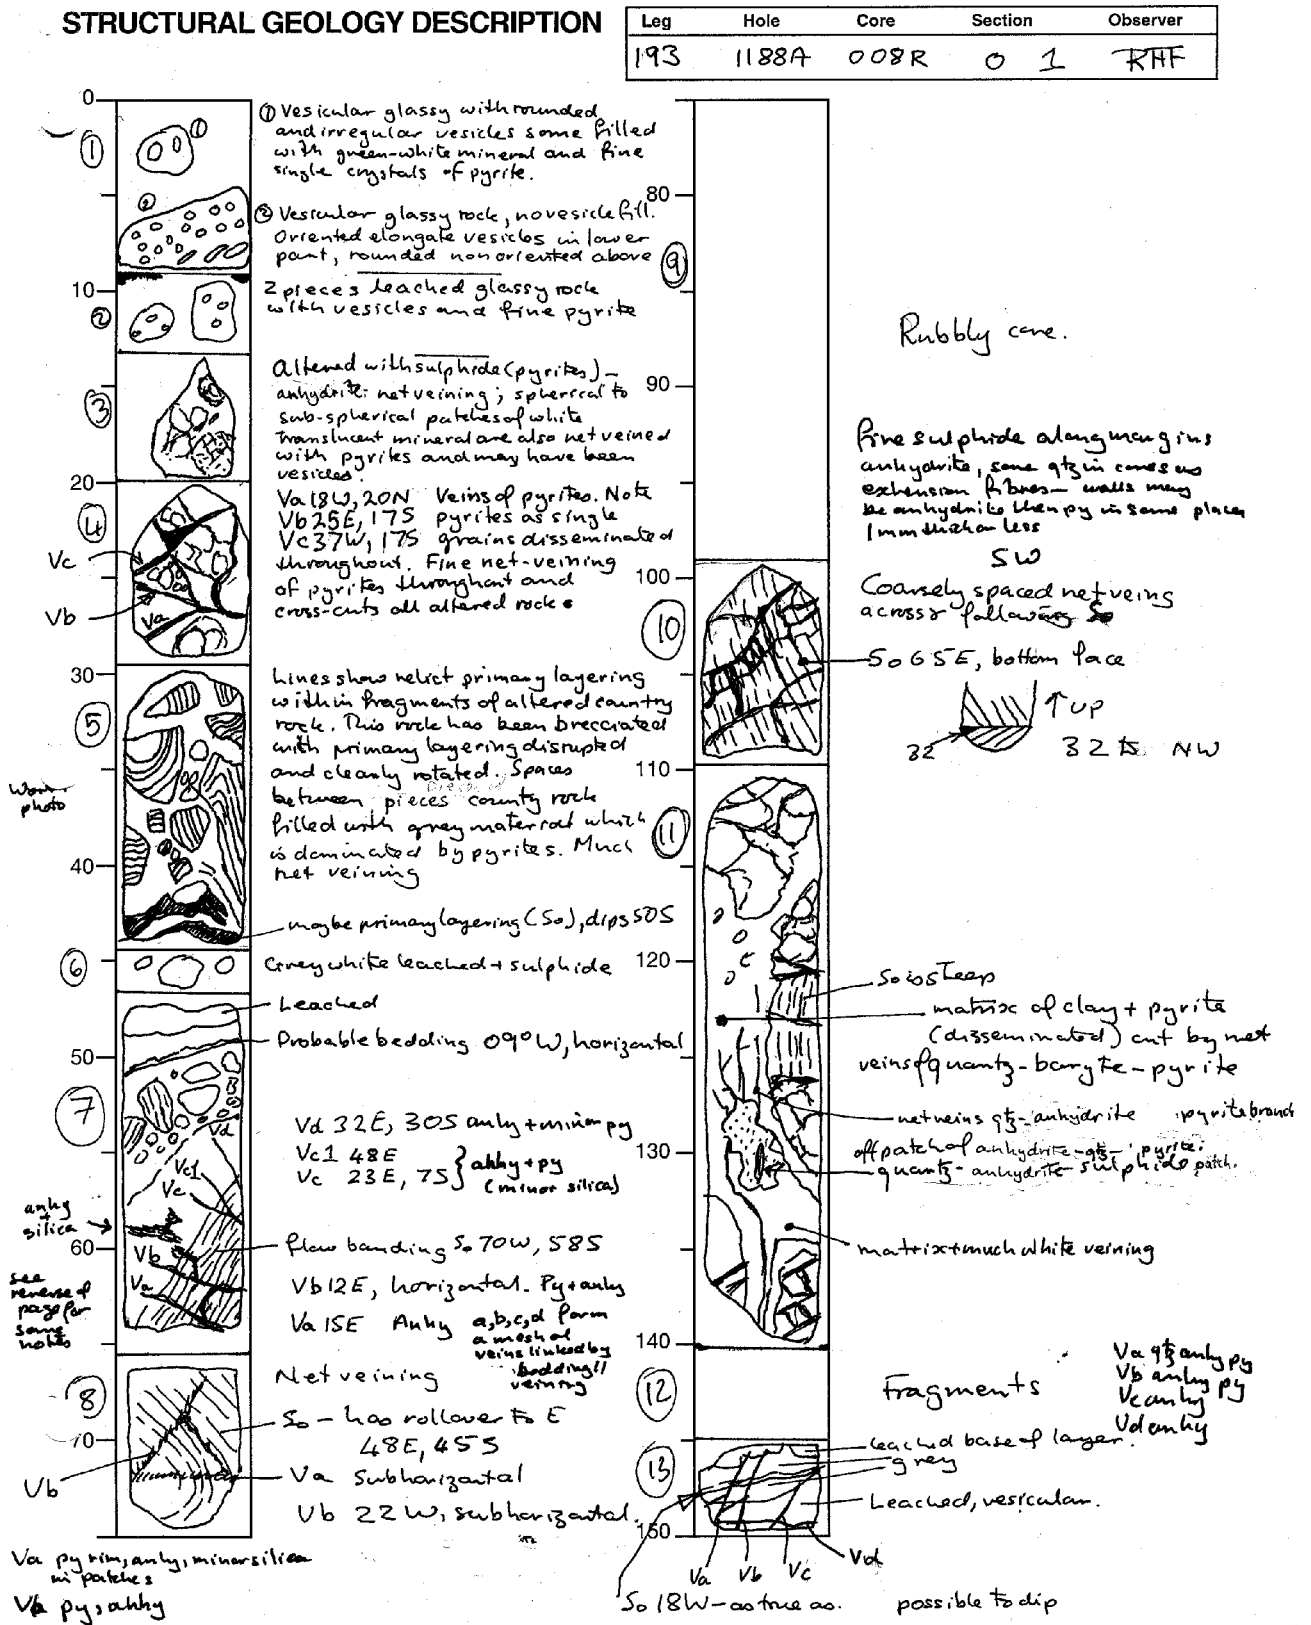 STRUCTURAL GEOLOGY DESCRIPTION
Leg Hole Core Section Observer
193 1188A 008R 0 1 RHF
0
① Vesicular glassy with rounded
and irregular vesicles some filled
with green-white mineral and fine
single crystals of pyrite.
①
①
②
② Vesicular glassy rock, no vesicle fill.
Oriented elongate vesicles in lower
part, rounded non oriented above
10
②
2 pieces leached glassy rock
with vesicles and fine pyrite
③
Altered with sulphide (pyrites) –
anhydrite net veining; spherical to
sub-spherical patches of white
translucent mineral are also net veined
with pyrites and may have been
vesicles.
20
④
Va 18W, 20N Veins of pyrites. Note
Vb 25E, 17S pyrites as single
Vc 37W, 17S grains disseminated
throughout. Fine net-veining
of pyrites throughout and
cross-cuts all altered rock
Vc
Vb
Va
30
⑤
Lines show relict primary layering
within fragments of altered country
rock. This rock has been brecciated
with primary layering disrupted
and clearly rotated. Spaces
between pieces county rock
filled with grey material which
is dominated by pyrites. Much
net veining
photo
40
maybe primary layering (So), dips 50S
⑥
Grey white leached + sulphide
Leached
Probable bedding 09° W, horizontal
50
⑦
Vd
Vc1
Vc
Vd 32E, 30S anhy + minor py
Vc1 48E
Vc 23E, 7S } anhy + py
(minor silica)
anhy
+
silica
60
Vb
Va
flow banding So 70W, 58S
Vb 12E, horizontal. Py + anhy
Va 15E Anhy a, b, c, d form
a mesh of
veins linked by
bedding //
veining
see
reverse of
page for
some
notes
⑧
Net veining
So – has rollover to E
48E, 45S
70
Va Subhorizontal
Vb
Vb 22W, subhorizontal.
Va py rim, anhy, minor silica
in patches
Vb py, anhy
80
⑨
Rubbly core.
90
fine sulphide along margins
anhydrite, some qtz in cores as
extension fibres – walls may
be anhydrite then py in some places
1mm thick or less
SW
100
Coarsely spaced net veins
across following So
⑩
So 65E, bottom face
↑ UP
32
32 NW
110
⑪
120
So is steep
matrix of clay + pyrite
(disseminated) cut by net
veins of quartz – baryte – pyrite
net veins qtz – anhydrite pyrite branch
130
off patch of anhydrite – qtz – pyrite.
quartz – anhydrite sulphide patch.
matrix + much white veining
140
⑫
Fragments
Va qtz anhy py
Vb anhy py
Vc anhy
Vd anhy
leached base of layer.
grey
⑬
Leached, vesicular.
150
Va Vb Vc Vd
So 18W – as true as. possible to dip